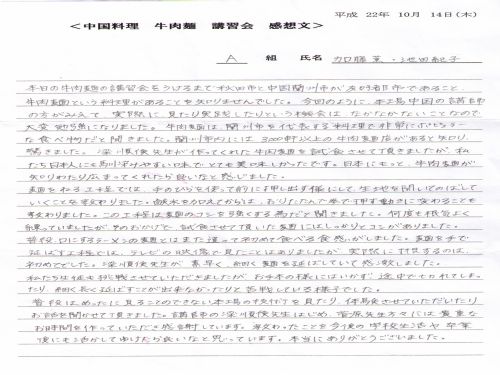 平成 22年 10月 14日(木)
<中国料理 牛肉麺 講習会 感想文>
A 組 氏名 加藤 葉・池田紀子
本日の牛肉麺の講習会をうけるまで秋田市と中国蘭州市が友好都市であること
牛肉麺という料理があることを知りませんでした。今回のように本場中国の講師
の方がみえて、実際に見たり実習したりという機会はなかなかないことなので
大変勉強になりました。牛肉麺は、蘭州市を代表する料理で非常にポピュラー
な食べ物だと聞きました。蘭州市内には、3000軒以上の牛肉麺店があると知り、
驚きました。深川順侠先生が作ってくれた牛肉麺を試食させて頂きましたが、私
たち日本人にも馴染みやすい味で、とても美味しかったです。日本にもっと、牛肉麺が
知りわたり広まってくれたら良いなと感じました。
麺をねる工程では、手のひらを使って前に押し出す様にして、生地を開いてのばして
いくことを教わりました。鹸水をカロえてからは、おりたたんで拳で押す動きに変わることも
教わりました。この工程は麺のコシを強くする為だと聞きました。何度も根気よく
練っていましたが、そのおかげで、試食させて頂いた麺にはしっかりとコシがありました。
普段、口にするラーメンの麺とはまた違って初めて食べる食感がしました。麺を手で
延ばす工程では、テレビの映像で見たことはありましたが、実際に拝見するのは、
初めてでした。深川順侠先生が素早く細く麺を延ばしていて感激しました。
私たち生徒も挑戦させていただきましたが、お手本の様にはいかず途中で切れてしま
ったり、細く長く延ばすことが出来なかったりと苦戦している様子でした。
普段はめったに見ることのできない本場の技術を見たり、体験させていただいたり
お話を聞かせて頂きました。講師の深川順侠先生はじめ、菅原先生方々には貴重な
お時間を作っていただき感謝しています。教わったことを今後の学校生活や卒業
後にも活かしてゆけたら良いなと思っています。本当にありがとうございました。